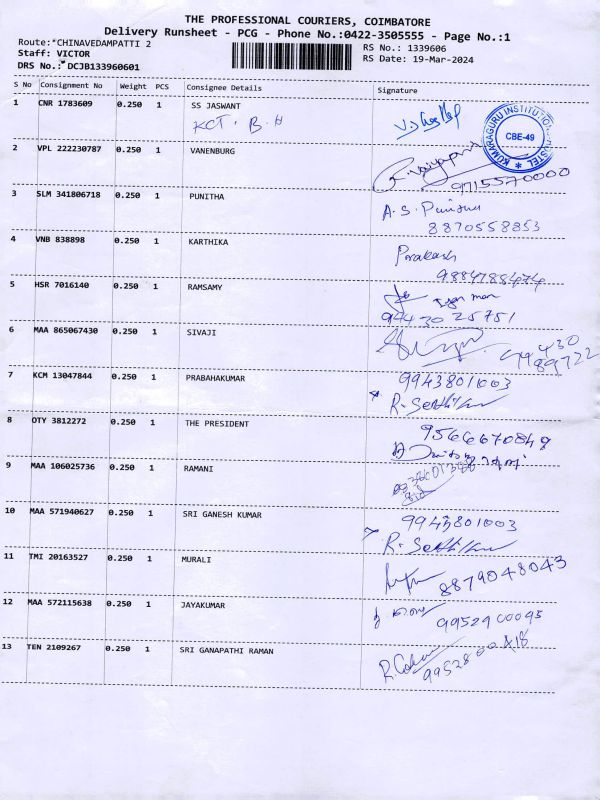 THE PROFESSIONAL COURIERS, COIMBATORE
Delivery Runsheet - PCG - Phone No.:0422-3505555 - Page No.:1
Route:*CHINAVEDAMPATTI 2 RS No.: 1339606
Staff: VICTOR RS Date: 19-Mar-2024
DRS No.: DCJB133960601
S No Consignment No Weight PCS Consignee Details Signature
1 CNR 1783609 0.250 1 SS JASWANT
KCT. B.H
KUMARAGURU INSTITUTION HOSTEL
CBE-49
2 VPL 222230787 0.250 1 VANENBURG
9715570000
3 SLM 341806718 0.250 1 PUNITHA A.S. Punitha
8870558853
4 VNB 838898 0.250 1 KARTHIKA Prakash
9884788474
5 HSR 7016140 0.250 1 RAMSAMY
94430 25751
6 MAA 865067430 0.250 1 SIVAJI
99430
89722
7 KCM 13047844 0.250 1 PRABAHAKUMAR 9943801003
R. Senthil
8 OTY 3812272 0.250 1 THE PRESIDENT 9566670849
9 MAA 106025736 0.250 1 RAMANI
10 MAA 571940627 0.250 1 SRI GANESH KUMAR 9943801003
R. Senthil
11 TMI 20163527 0.250 1 MURALI 8879048043
12 MAA 572115638 0.250 1 JAYAKUMAR
9952900095
13 TEN 2109267 0.250 1 SRI GANAPATHI RAMAN